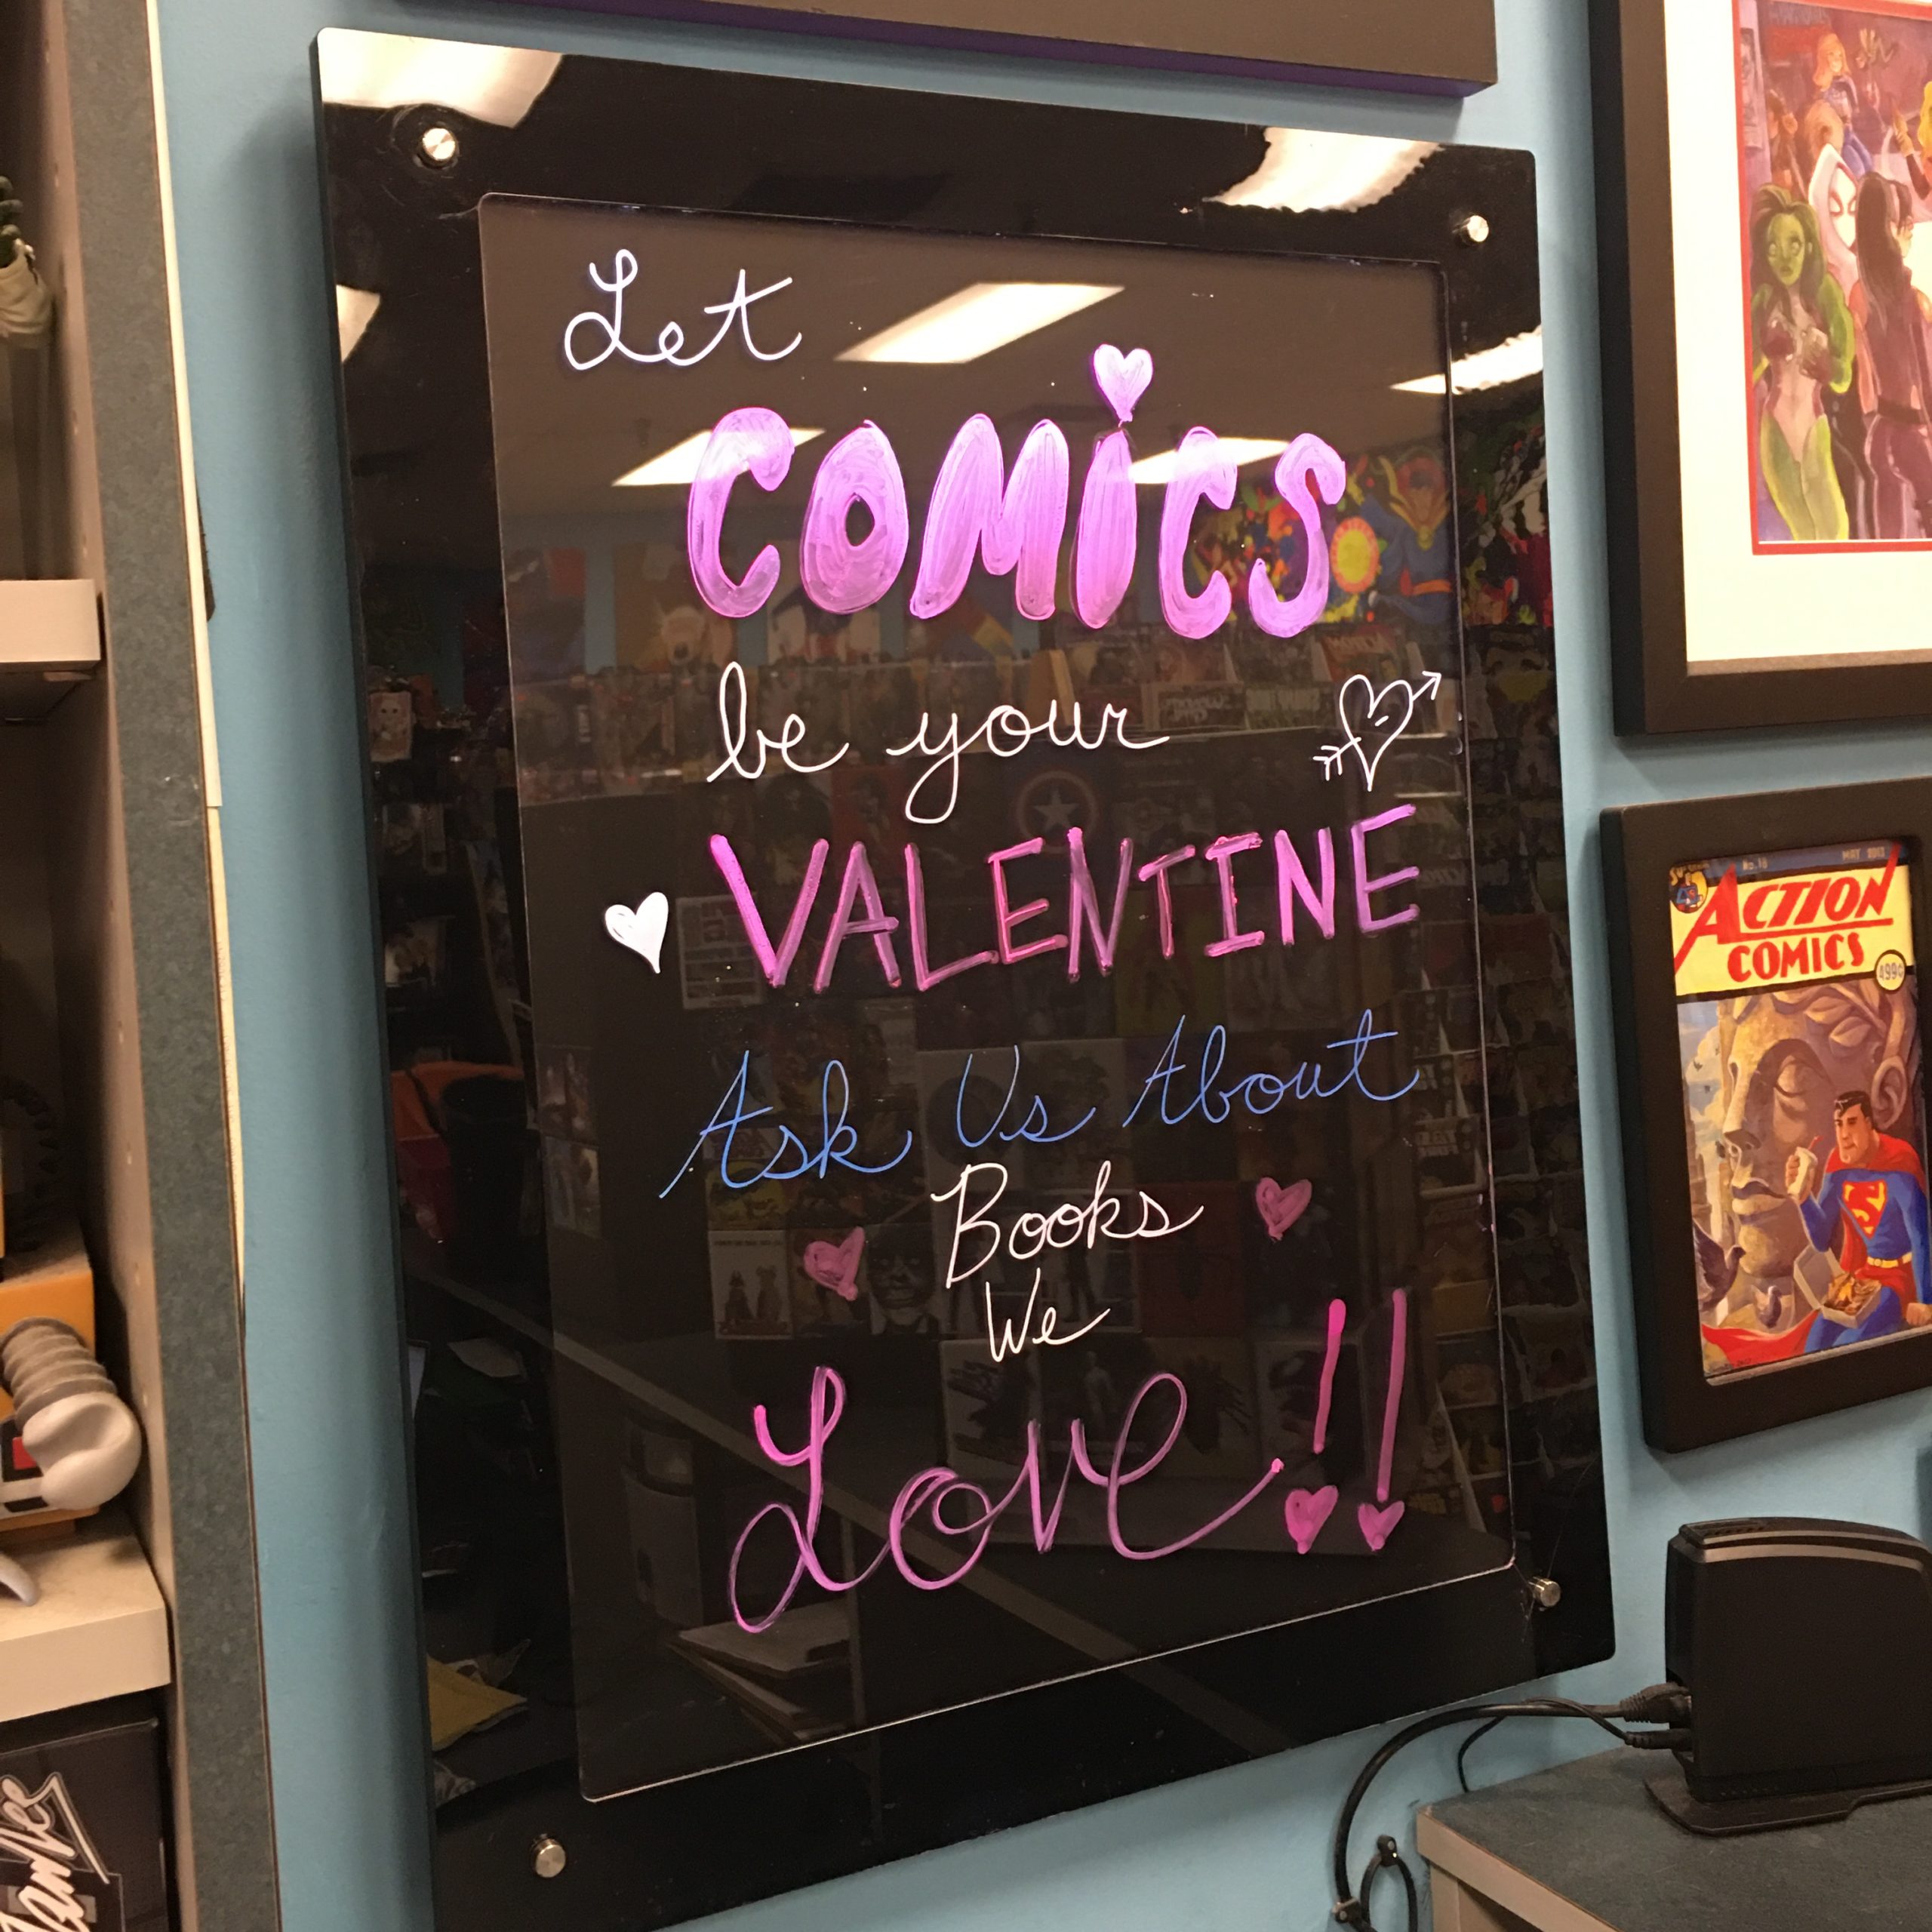 Let
COMiCS
be your
VALENTINE
Ask Us About
Books
We
Love!!
No. 18 MAY 2013
ACTION
COMICS
499¢